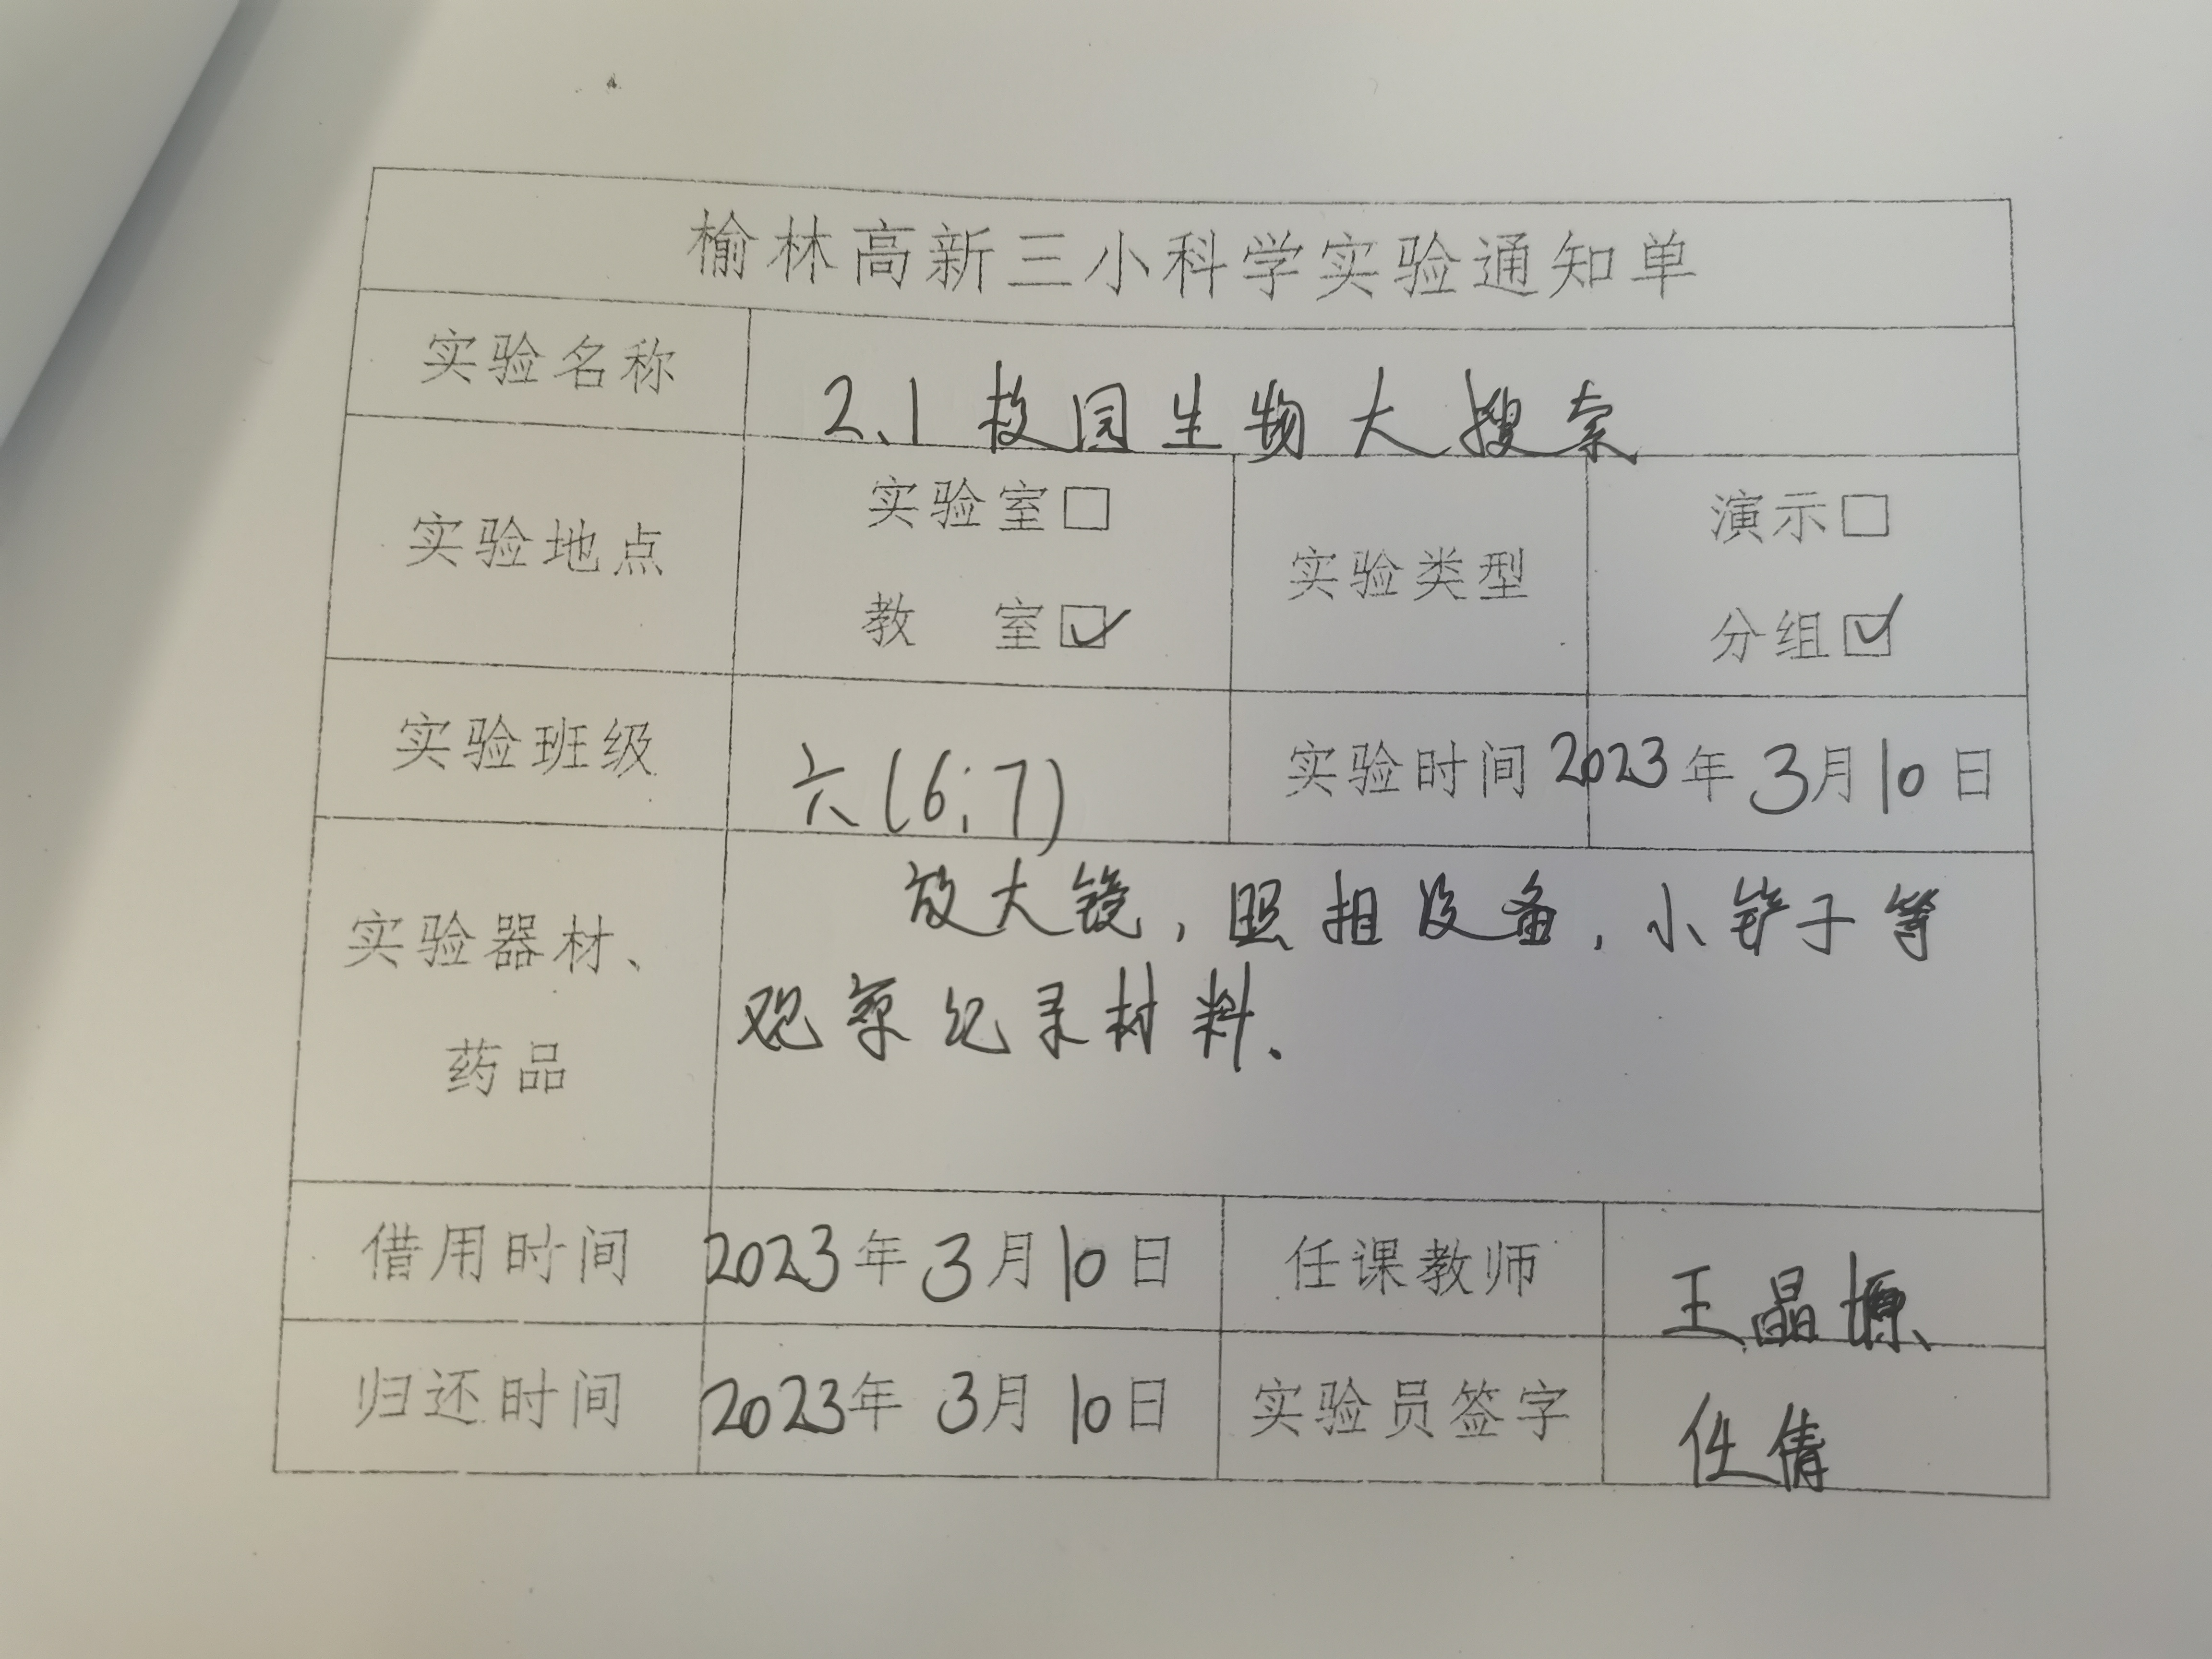 榆林高新三小科学实验通知单
实验名称 2.1 校园生物大搜索
实验地点 实验室□ 教 室☑ 实验类型 演示□ 分组☑
实验班级 六(6;7) 实验时间 2023年3月10日
实验器材、药品 放大镜,照相设备,小铲子等
观察纪录材料.
借用时间 2023年3月10日 任课教师 王晶塬
归还时间 2023年3月10日 实验员签字 任倩